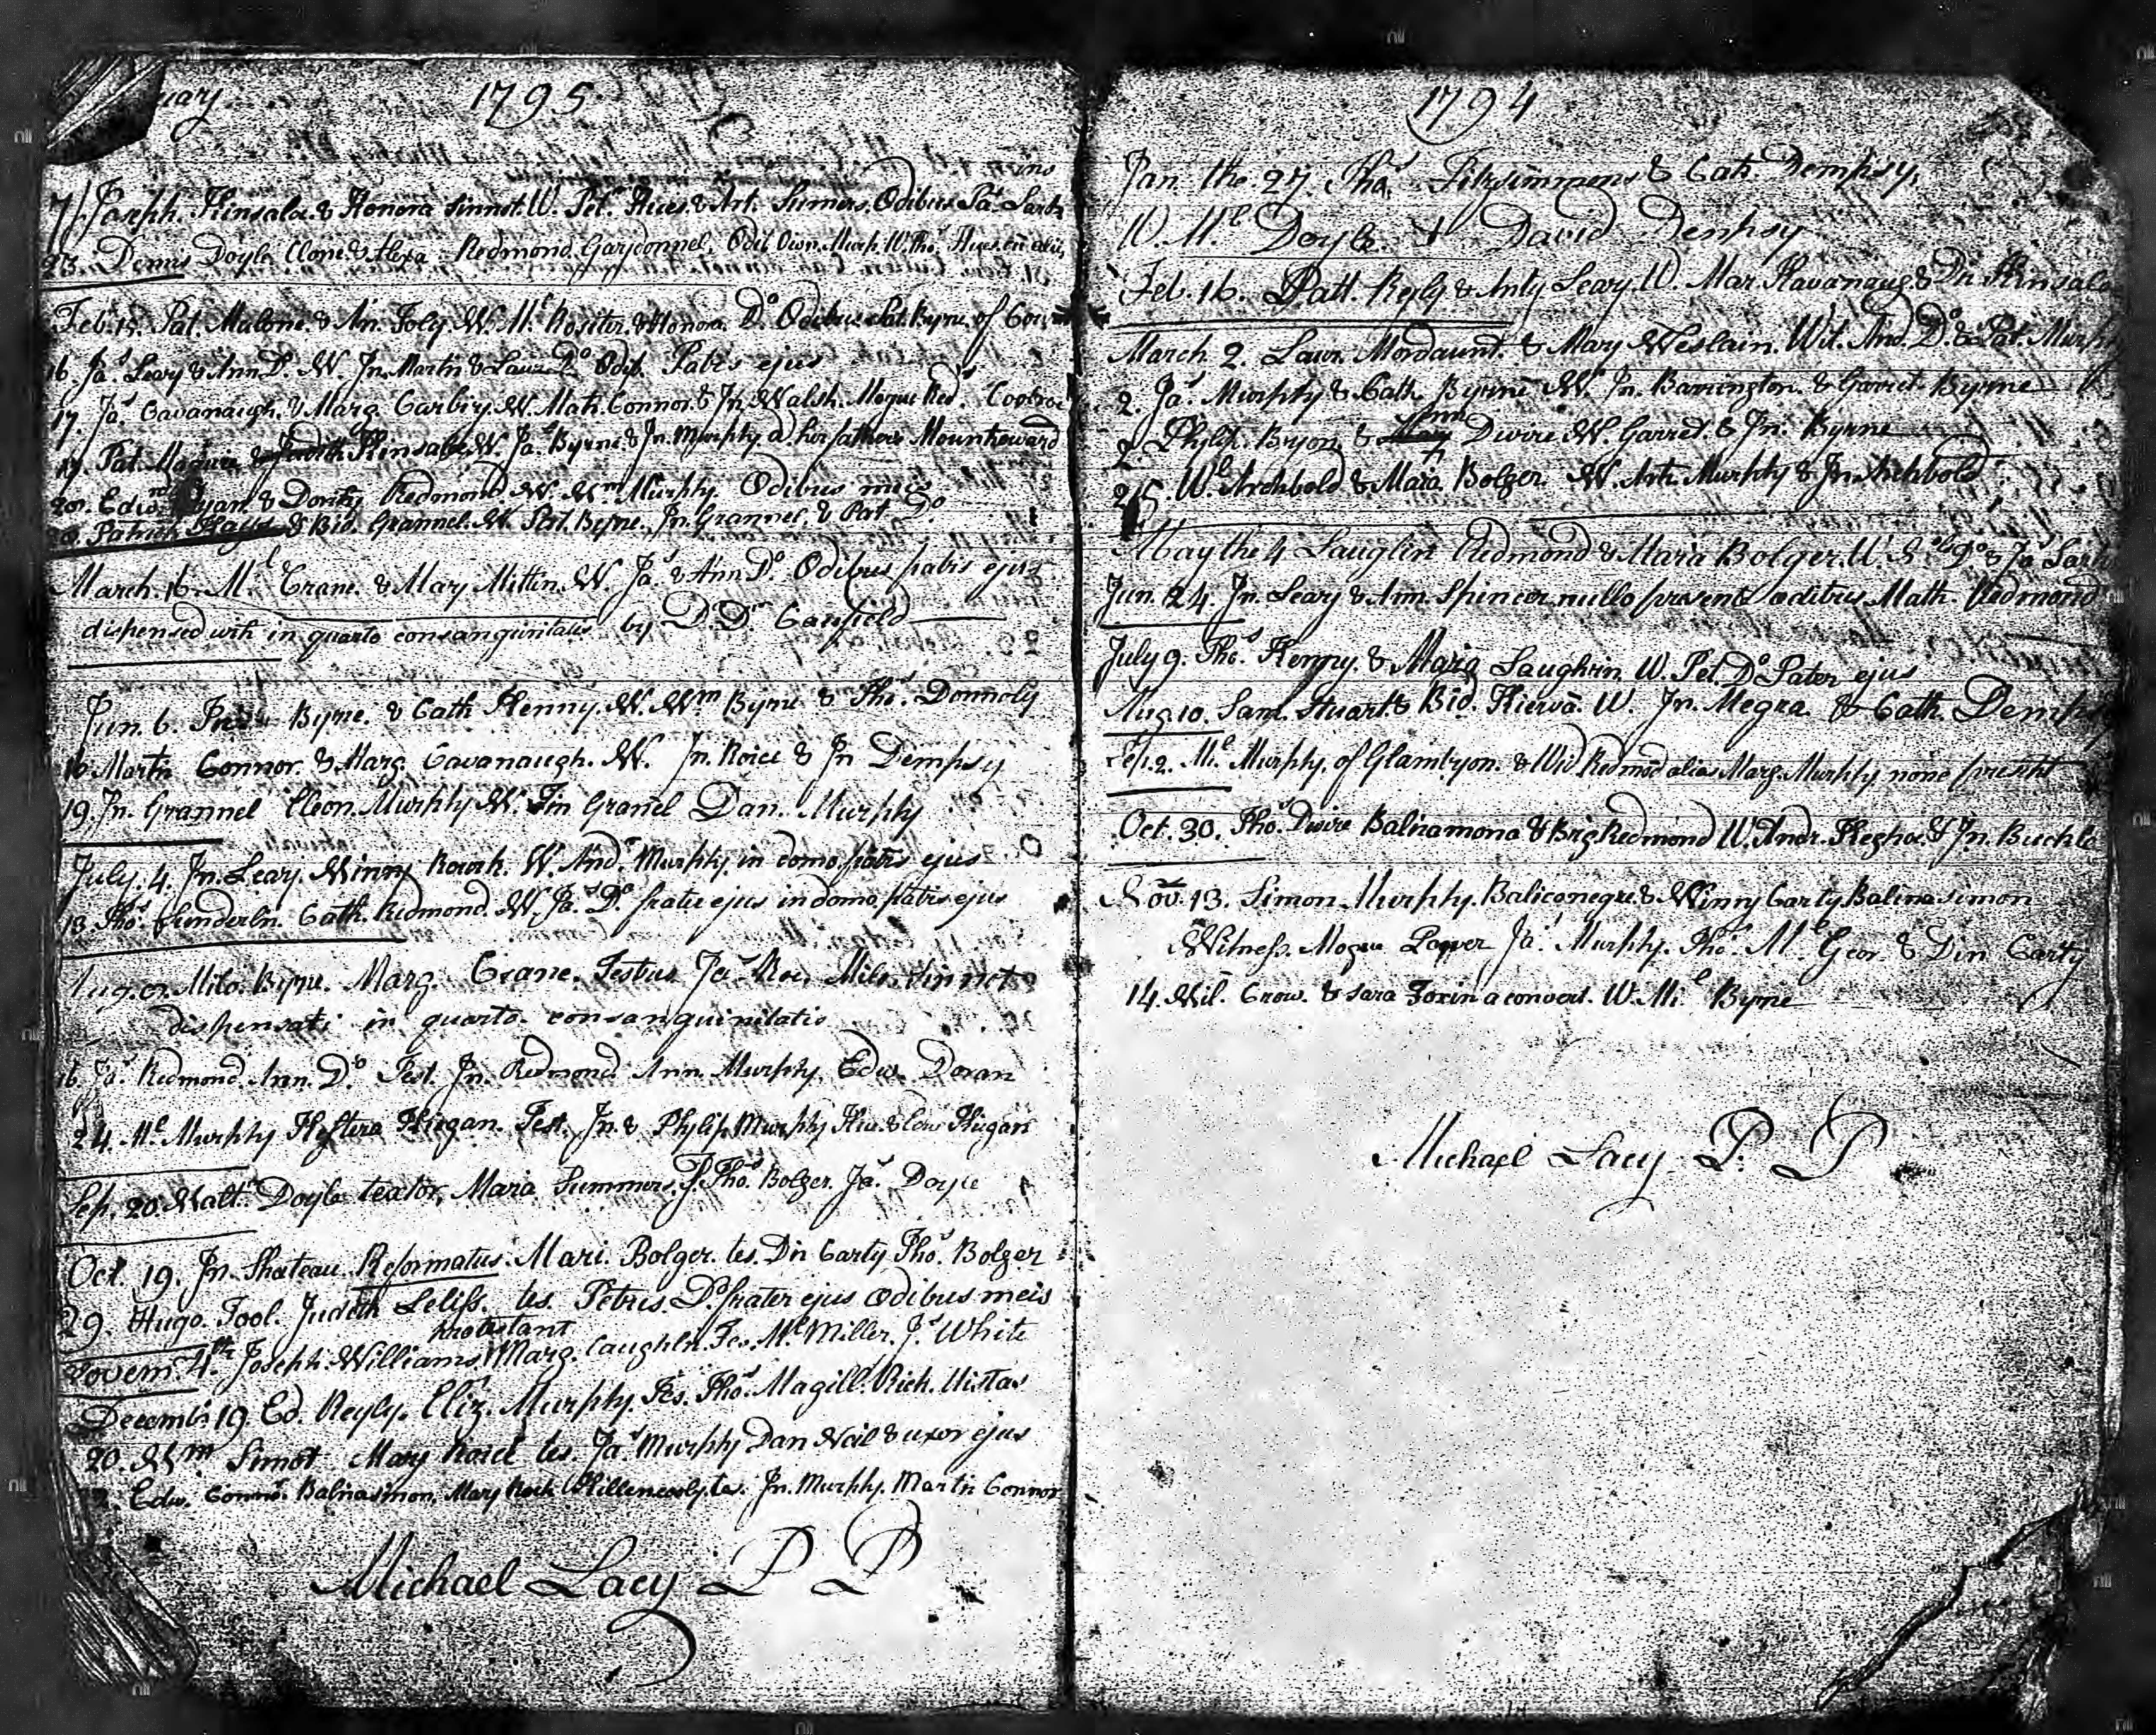 uary 1795
7 Joseph Kinsala & Honora Sinnot. W. Pet. Hues. & Art. Sumers. Odibus Pa.
23. Denis Doyle Clone & Alexa Redmond Garydonnel, Odib Own. Murh. W. Thos.
Feb. 15. Pat. Malone & An. Foly W. Ml. Rositer. & Honora Do. Odibus Pat. Byrne of
16. Jas. Leary & Ann Do. W. Jn. Martin & Laur. Do. Odib. Patris ejus
17. Jas. Cavanaugh. & Marg. Carbiry. W. Math. Connor. & Jn. Walsh. Mogue Red.
19. Pat. Maguire & Judith Kinsala. W. Jas. Byrne & Jn. Murphy a her fathers Mounthoward
20. Edwd. Ryan. & Dority Redmond W. Wm. Murphy. Odibus meis
20. Patrick Hayes & Bid. Grannel. W. Pat. Byrne. Jn. Grannel. & Pat. Do.
March. 16. Ml. Crane. & Mary Mittin. W. Jas. & Ann Do. Odibus patris ejus
dispensed with in quarto consanguinitatis by D. Dr. Caufield
Jun. 6. Byrne. & Cath Kenny. W. Wm Byrne & Thos. Donnoly
16 Martin Connor. & Marg. Cavanaugh. W. Jn. Roice & Jn Dempsy
19. Jn. Grannel Eleon. Murphy W. Jin Granel Dan. Murphy
July. 4. Jn. Leary. Winny Rourk. W. Andr. Murphy in domo patris ejus
13 Thos. Sunderln. Cath. Redmond. W. Jas. Do. fratre ejus in domo patris ejus
Aug. 9. Milo. Byrne. Marg. Crane. Testus Jas. Roe. Mils. Sinnot
dispensati in quarto consanguinitatis
16. Jas. Redmond. Ann. Do. Test. Jn. Redmond. Ann. Murphy. Edw. Doran
24. Ml. Murphy Hestera Kiegan. Test. Jn. & Philip Murphy Kiegan
Sep. 20. Walt. Doyle textor, Maria Summers. T. Thos. Bolger. Jas. Doyle
Oct. 19. Jn. Shateau Reformatus. Mari. Bolger. tes. Din Carty Thos. Bolger
29. Hugo. Tool. Judith Leliss. tes. Petrus. Do. frater ejus Odibus meis
protestant
Novem. 4th. Joseph Williams, Marg. Caughln. Tes. Ml. Miller. Js. White
Decembr. 19. Ed. Reyly. Eliz. Murphy. Tes. Thos. Magill. Rich. Uistas
20. Wm Simot Mary Roice tes. Jas. Murphy Dan Neil & uxor ejus
Edw. Connor. Balinasimon. Mary Rock Killenerooly. tes. Jn. Murphy. Martin Connor
Michael Lacy P P
1794
Jan. the. 27. Thos. Fitzsimmons & Cath. Dempsy,
W. Ml. Doyle. & David Dempsy
Feb. 16. Patt. Reyly & Anty Leary. W. Mar. Kavanaugh & Dn. Kinsala
March. 2. Laur. Mordaunt. & Mary Weslain. Wit. And. Do. & Pat. Murphy
2. Jas. Murphy & Cath. Byrne W. Jn. Barrington. & Garret Byrne
Ann
2. Philip. Bryon & Mary Dwire W. Garret. & Jn. Byrne
26. Wl. Archbold & Maria Bolger. W. Art. Murphy & Jn. Archbold
May the 4 Lauglin Redmond & Maria Bolger. W. Do. & Jas.
Jun. 24. Jn. Leary & Ann. Spincer nullo presente odibus Math. Redmond
July 9. Thos. Kenny. & Maria Laughrin W. Pet. Do Pater ejus
Aug. 10. Saml. Stuart & Bid. Kierva. W. Jn. Megra & Cath. Demps
Sep. 2. Ml. Murphy. of Glambyon. & Wid Redmod alias Marg. Murphy none present
Oct. 30. Thos. Dwire Balinamona & Brig Redmond W. Andr. Keghoe & Jn. Buckle
Nov. 13. Simon Murphy. Baliconegue & Winny Carty Balinasimon
Witness. Mogue Power Jas. Murphy. Thos. Ml. Geor & Din Carty
14. Wil. Crow. & Sara Foxin a convert. W. Ml. Byrne
Michael Lacy. P. P